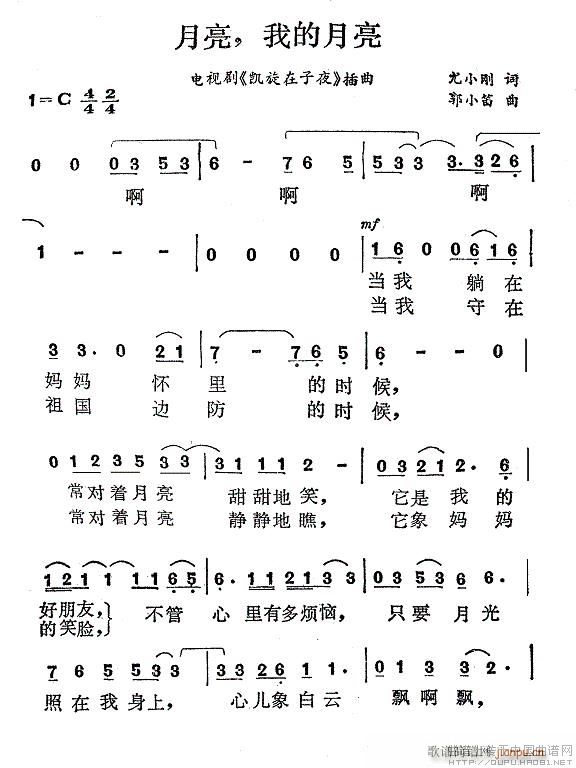 月亮，我的月亮
电视剧《凯旋在子夜》插曲
尤小刚 词
1=C 4/4 2/4
郭小笛 曲
0 0 0 3 5 3 | 6 - 7 6 5 | 5 3 3 3· 3 2 6 |
啊 啊 啊
mf
1 - - - | 0 0 0 0 | 1 6 0 0 6 1 6 |
当我 躺在
当我 守在
3 3· 0 2 1 | 7 - 7 6 5 | 6 - - 0 |
妈妈 怀里 的时候，
祖国 边防 的时候，
0 1 2 3 5 3 3 | 3 1 1 1 2 - | 0 3 2 1 2· 6 |
常对着月亮 甜甜地笑， 它是我的
常对着月亮 静静地瞧， 它象妈妈
1 2 1 1 1 1 1 6 5 | 6· 1 1 2 1 3 3 | 0 3 5 3 6 5 |
好朋友，} 不管 心里有多烦恼， 只要月光
的笑脸，
7 6 5 5 3 3 | 3 3 2 6 1· | 0 1 3 3 2· |
照在我身上， 心儿象白云 飘啊飘，
http://www.QUPU.HAO81.NET